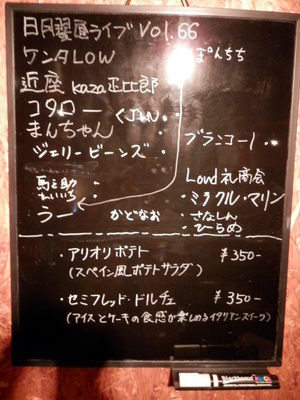 日月曜直ライブ Vol.66
ケンタLOW
ぽんちち
近座 kaza 正比郎
コタロー < JUN
まんちゃん
ブランコー!
ジェリービーンズ
Loud礼商会
馬之助
・ミラクル・マリン
れいいち
・さなしん
ラー
かどなお
・ひらめ
・アリオリポテト ¥350-
(スペイン風ポテトサラダ)
・セミフレッド・ドルチェ ¥350-
(アイスとケーキの食感が楽しめるイタリアンスイーツ)